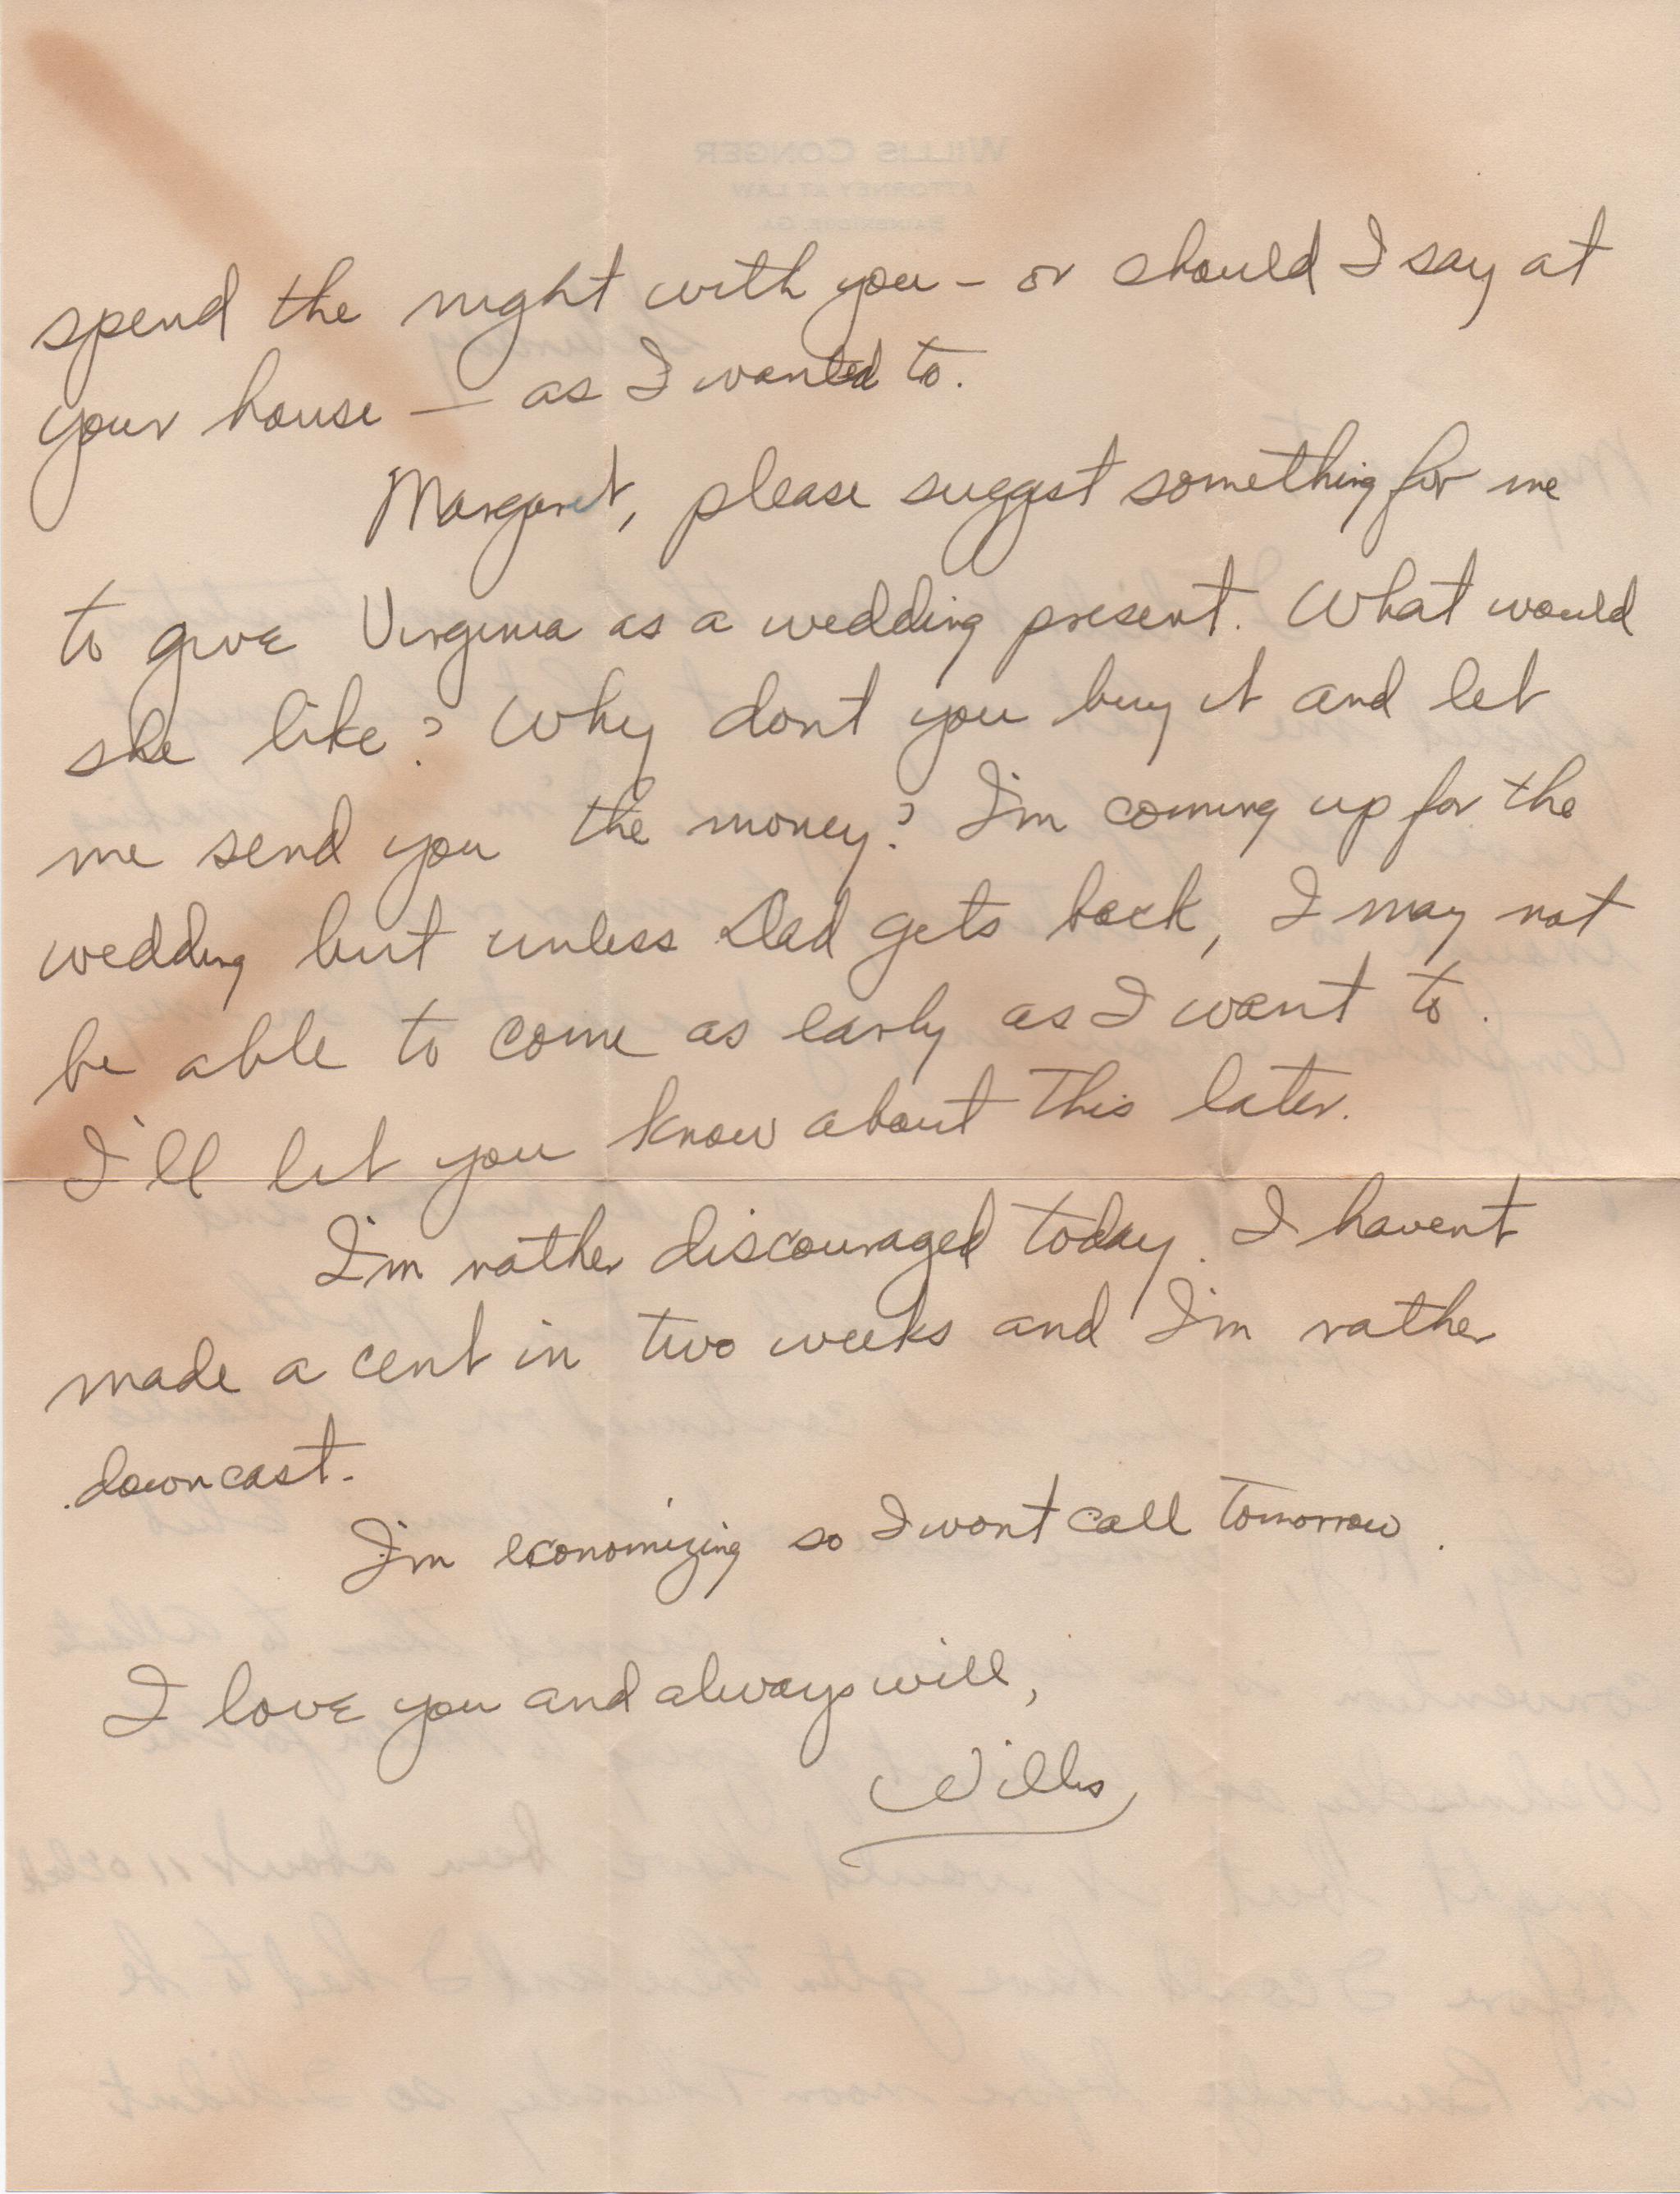 WILLIS CONGER
ATTORNEY AT LAW
BAINBRIDGE, GA.
spend the night with you – or should I say at
your house — as I wanted to.
Margaret, please suggest something for me
to give Virginia as a wedding present. What would
she like? Why dont you buy it and let
me send you the money? I'm coming up for the
wedding but unless Dad gets back, I may not
be able to come as early as I want to.
I'll let you know about this later.
I'm rather discouraged today. I havent
made a cent in two weeks and I'm rather
downcast.
I'm economizing so I wont call tomorrow.
I love you and always will,
Willis